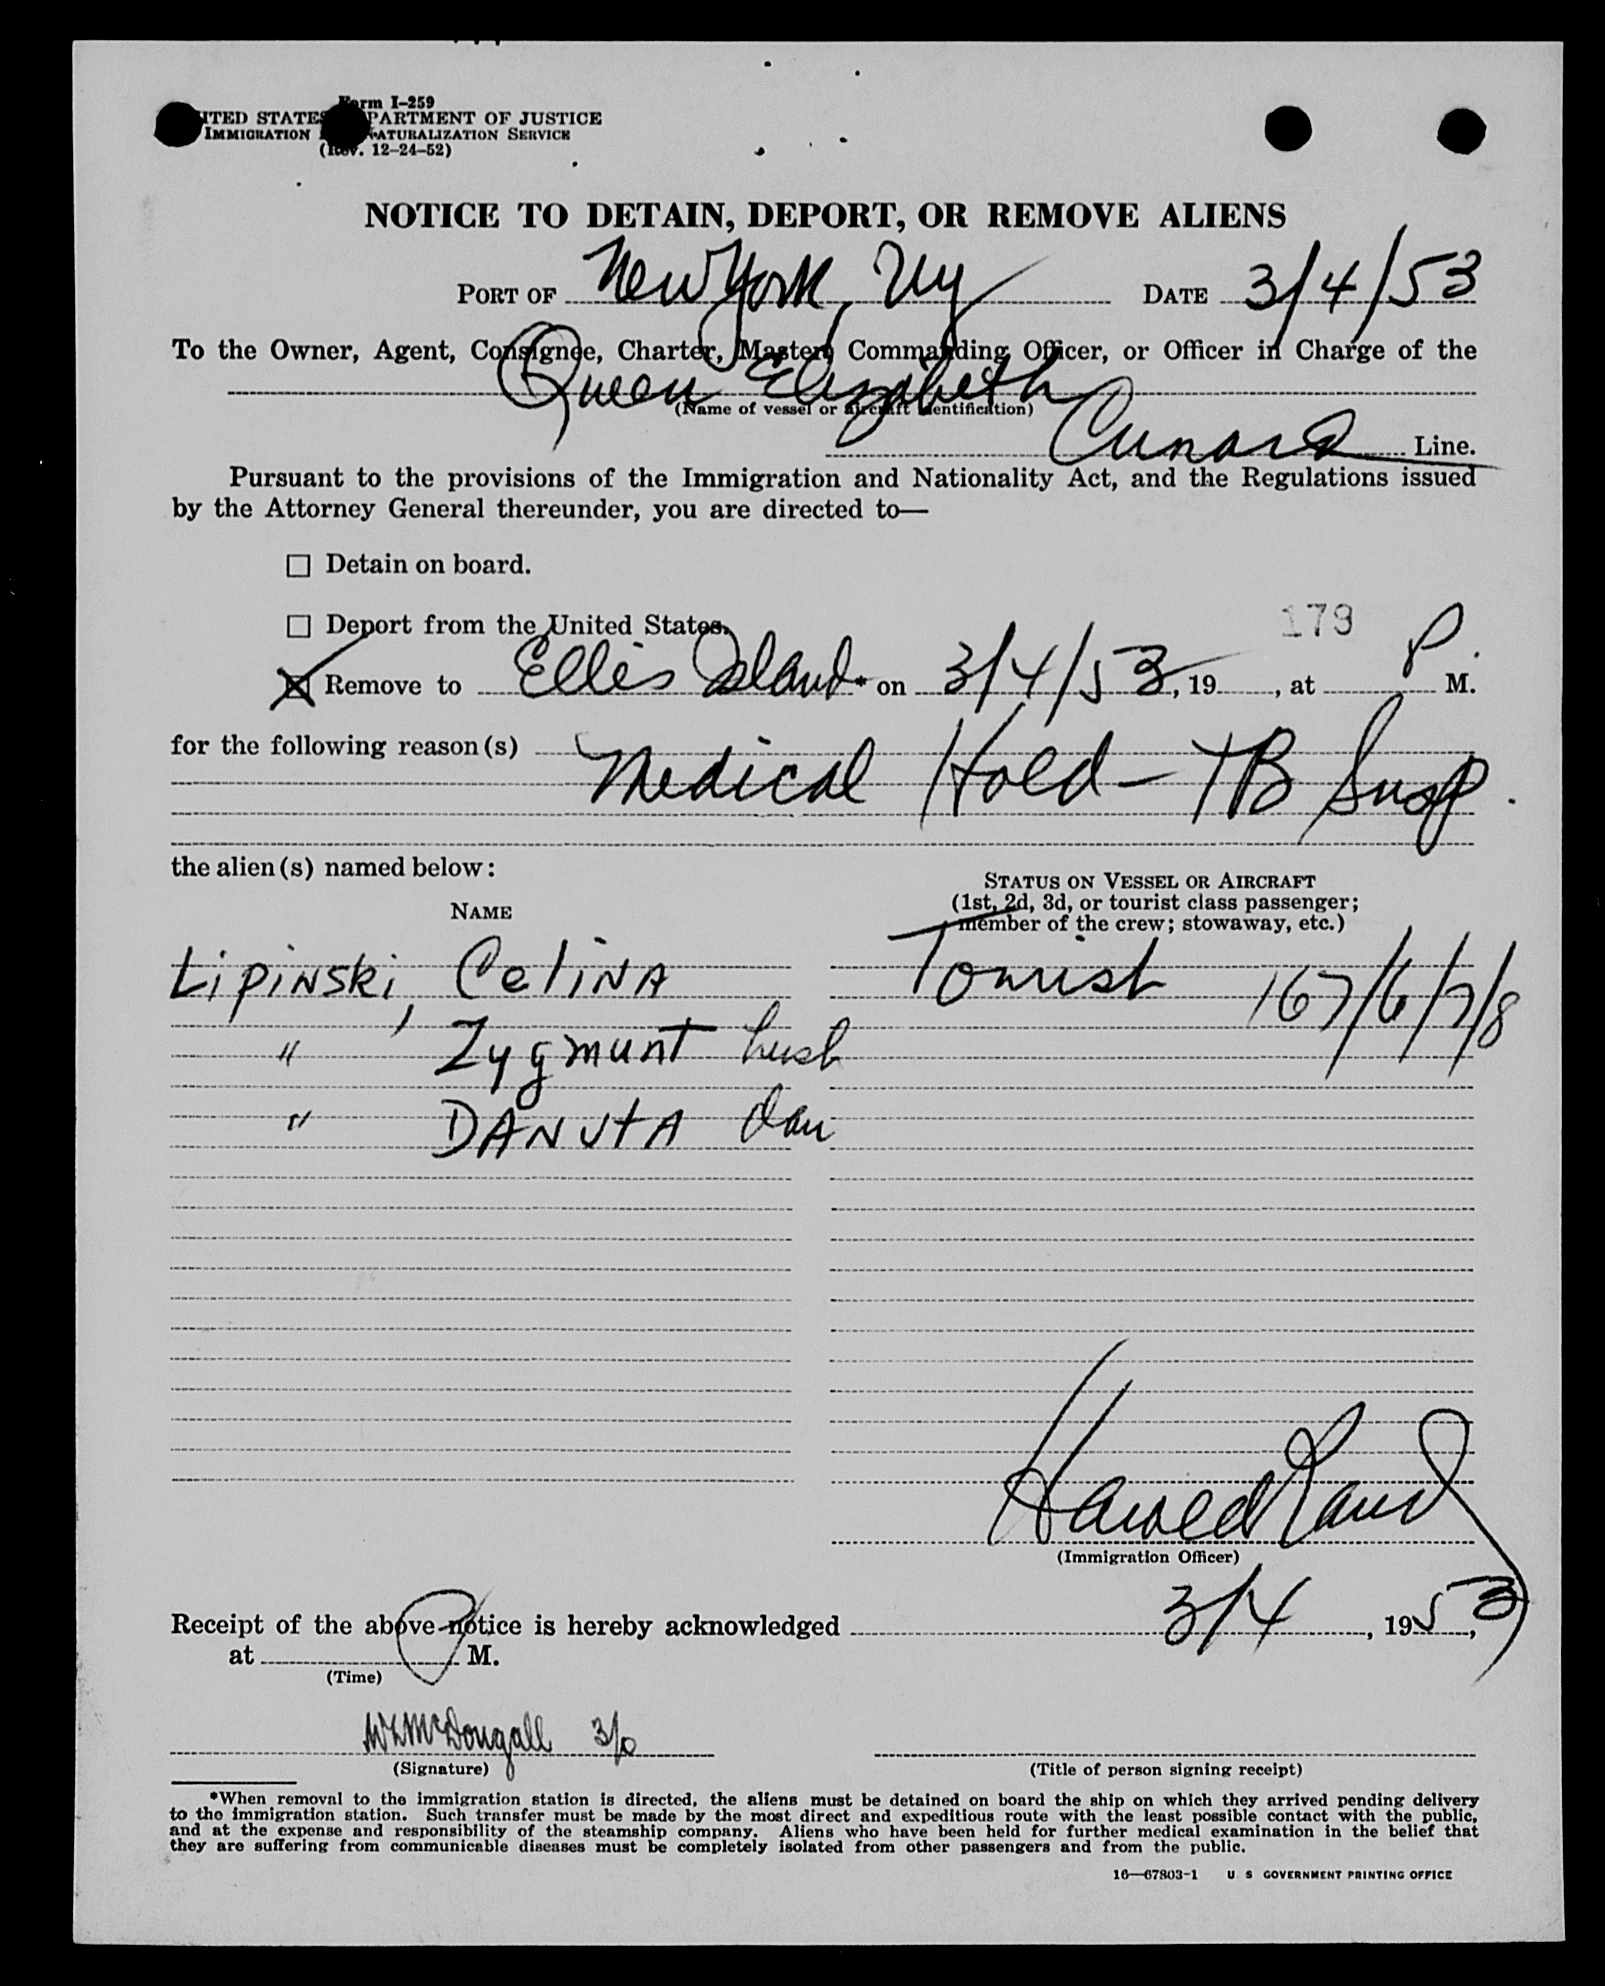 Form I-259
UNITED STATES DEPARTMENT OF JUSTICE
IMMIGRATION NATURALIZATION SERVICE
(Rev. 12-24-52)
NOTICE TO DETAIN, DEPORT, OR REMOVE ALIENS
PORT OF New York, Ny DATE 3/4/53
To the Owner, Agent, Consignee, Charter, Master, Commanding Officer, or Officer in Charge of the
Queen Elizabeth
(Name of vessel or aircraft identification)
Cunard Line.
Pursuant to the provisions of the Immigration and Nationality Act, and the Regulations issued
by the Attorney General thereunder, you are directed to—
☐ Detain on board.
☐ Deport from the United States.
179
☒ Remove to Ellis Island* on 3/4/53, 19, at P. M.
for the following reason(s) Medical Hold - TB Susp.
the alien(s) named below:
NAME
STATUS ON VESSEL OR AIRCRAFT
(1st, 2d, 3d, or tourist class passenger;
member of the crew; stowaway, etc.)
Lipinski, Celina Tourist 167/6/7/8
" Zygmunt husb
" DANUtA dau
Harold
(Immigration Officer)
Receipt of the above notice is hereby acknowledged 3/4, 1953,
at P M.
(Time)
McDougall 3/o
(Signature)
(Title of person signing receipt)
*When removal to the immigration station is directed, the aliens must be detained on board the ship on which they arrived pending delivery
to the immigration station. Such transfer must be made by the most direct and expeditious route with the least possible contact with the public,
and at the expense and responsibility of the steamship company. Aliens who have been held for further medical examination in the belief that
they are suffering from communicable diseases must be completely isolated from other passengers and from the public.
16—67803-1 U. S. GOVERNMENT PRINTING OFFICE